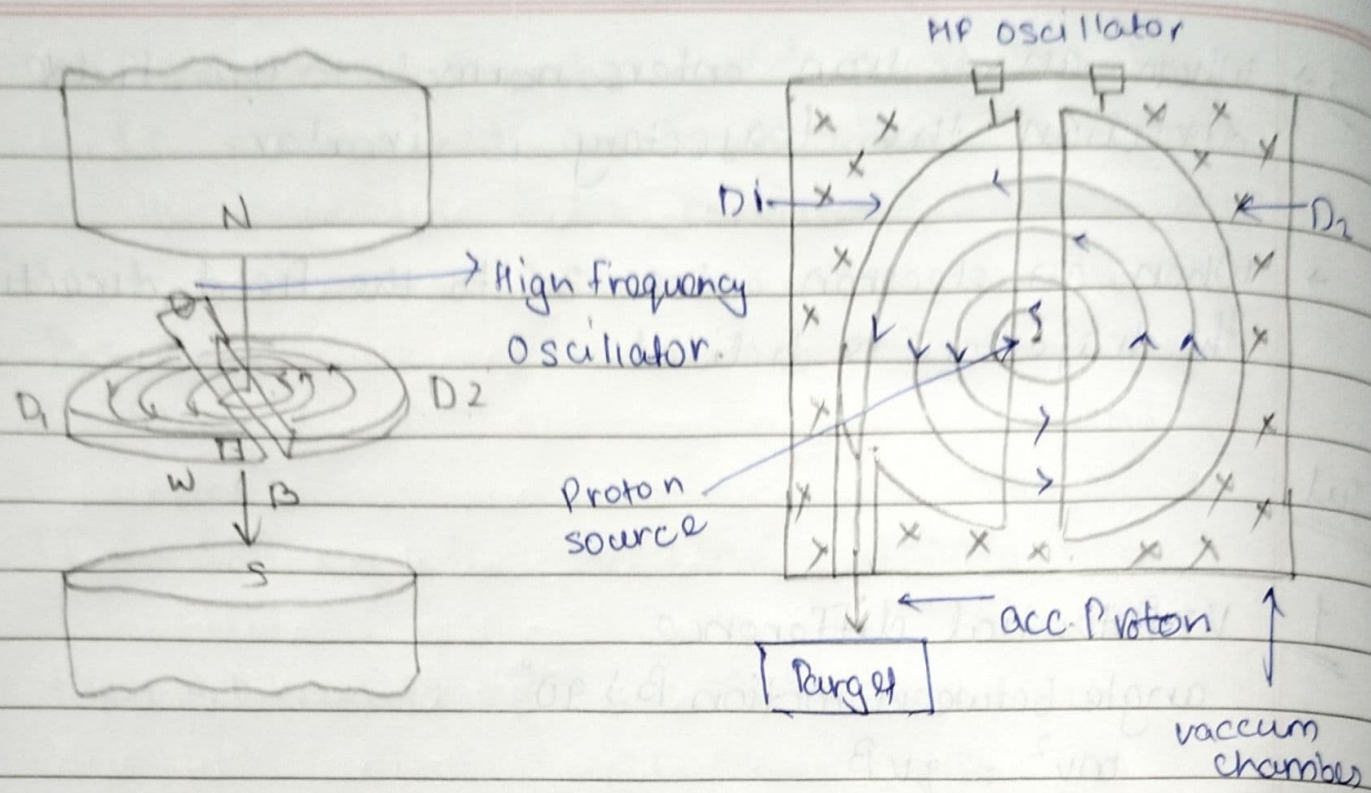 HF Oscillator
N
High frequency
Oscillator.
D1
D2
D1
D2
S
W
B
S
Proton
source
acc. Proton
Target
vaccum
chamber